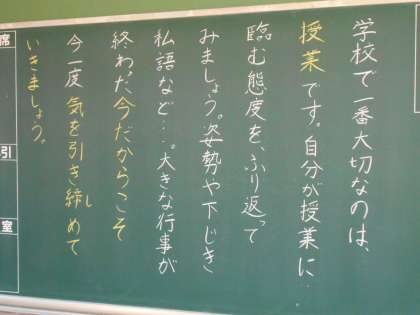 学校で一番大切なのは、
授業です。自分が授業に
臨む態度を、ふり返って
みましょう。姿勢や下じき
私語など…。大きな行事が
終わった今だからこそ
今一度気を引き締めて
し
いきましょう。
席
引
室